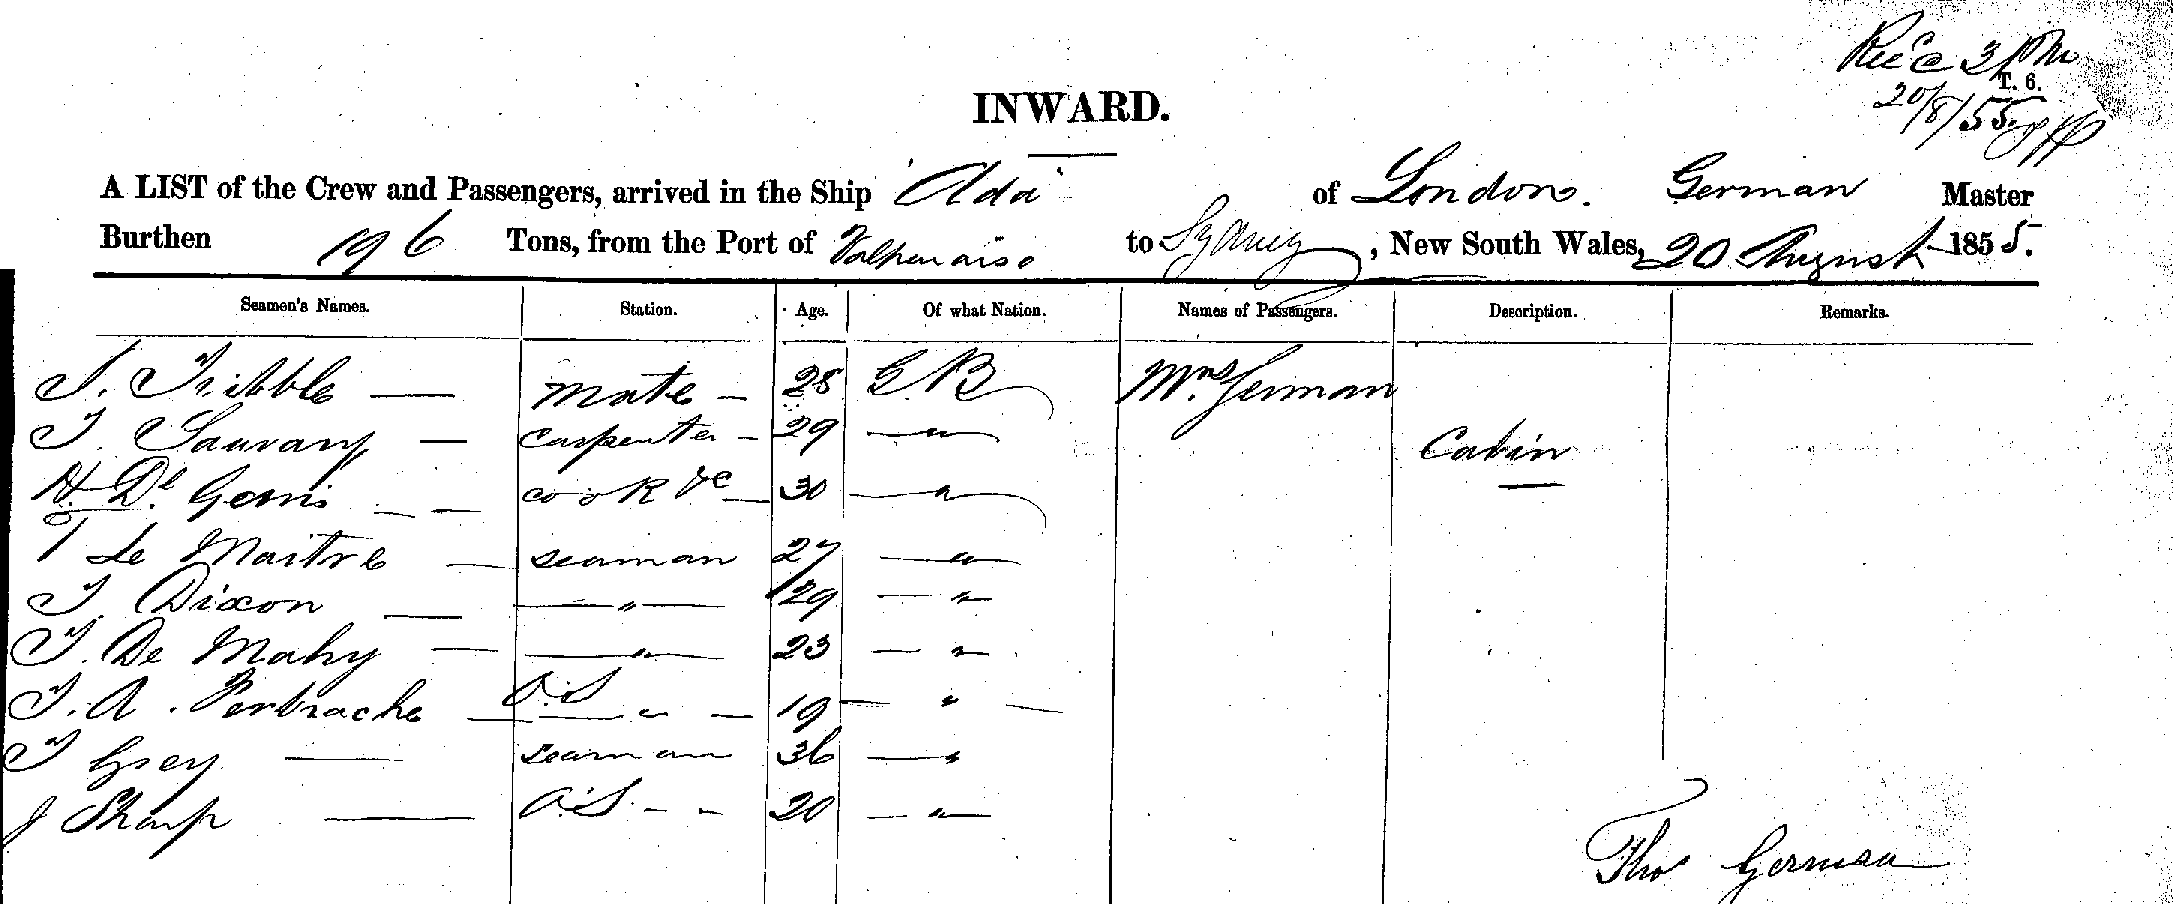 Rec'd 3 PM
T. 6.
20/8/55
INWARD.
A LIST of the Crew and Passengers, arrived in the Ship "Ada" of London. German Master
Burthen 196 Tons, from the Port of Valparaiso to Sydney, New South Wales, 20 August 1855.
Seamen's Names. Station. Age. Of what Nation. Names of Passengers. Description. Remarks.
T. Tribble — Mate — 28 G.B Mrs. German
T. Sauvary — carpenter — 29 — " — Cabin
H. De Garis — — cook &c — 30 — " —
T Le Maitre — seaman 27 — " —
T. Dixon — — " — 29 — "
T. De Mahy — — " — 23 — "
T. A. Perbrache — O.S — " — 19 — " —
T Grey — seaman 36 — "
J Sharp — O.S. - - 20 — " —
Thos German